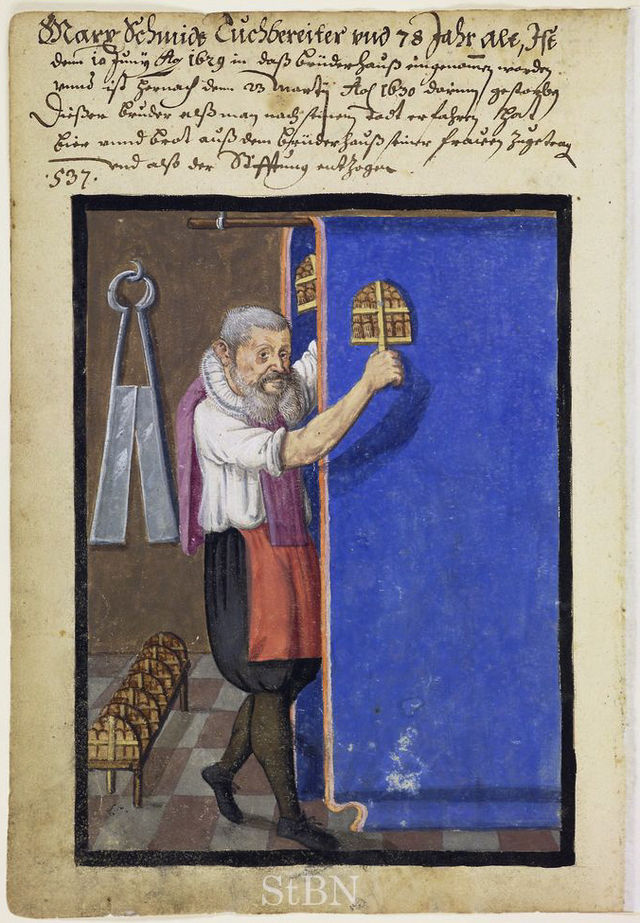 Marx Schmidt Tuchbereiter vnd 78 Jahr alt, Ist
dem 10 Junÿ Aō 1629 in daß brüderhauß eingenommen worden
vnnd ist hernach dem 23 Martÿ Aō 1630 darinn gestorben
Dießer bruder alß man nach seinem Todt erfahren hat
bier vnnd brot auß dem brüderhauß seiner frauen Zugetrag
vnd also der Stifftung entzogen
537.
StBN